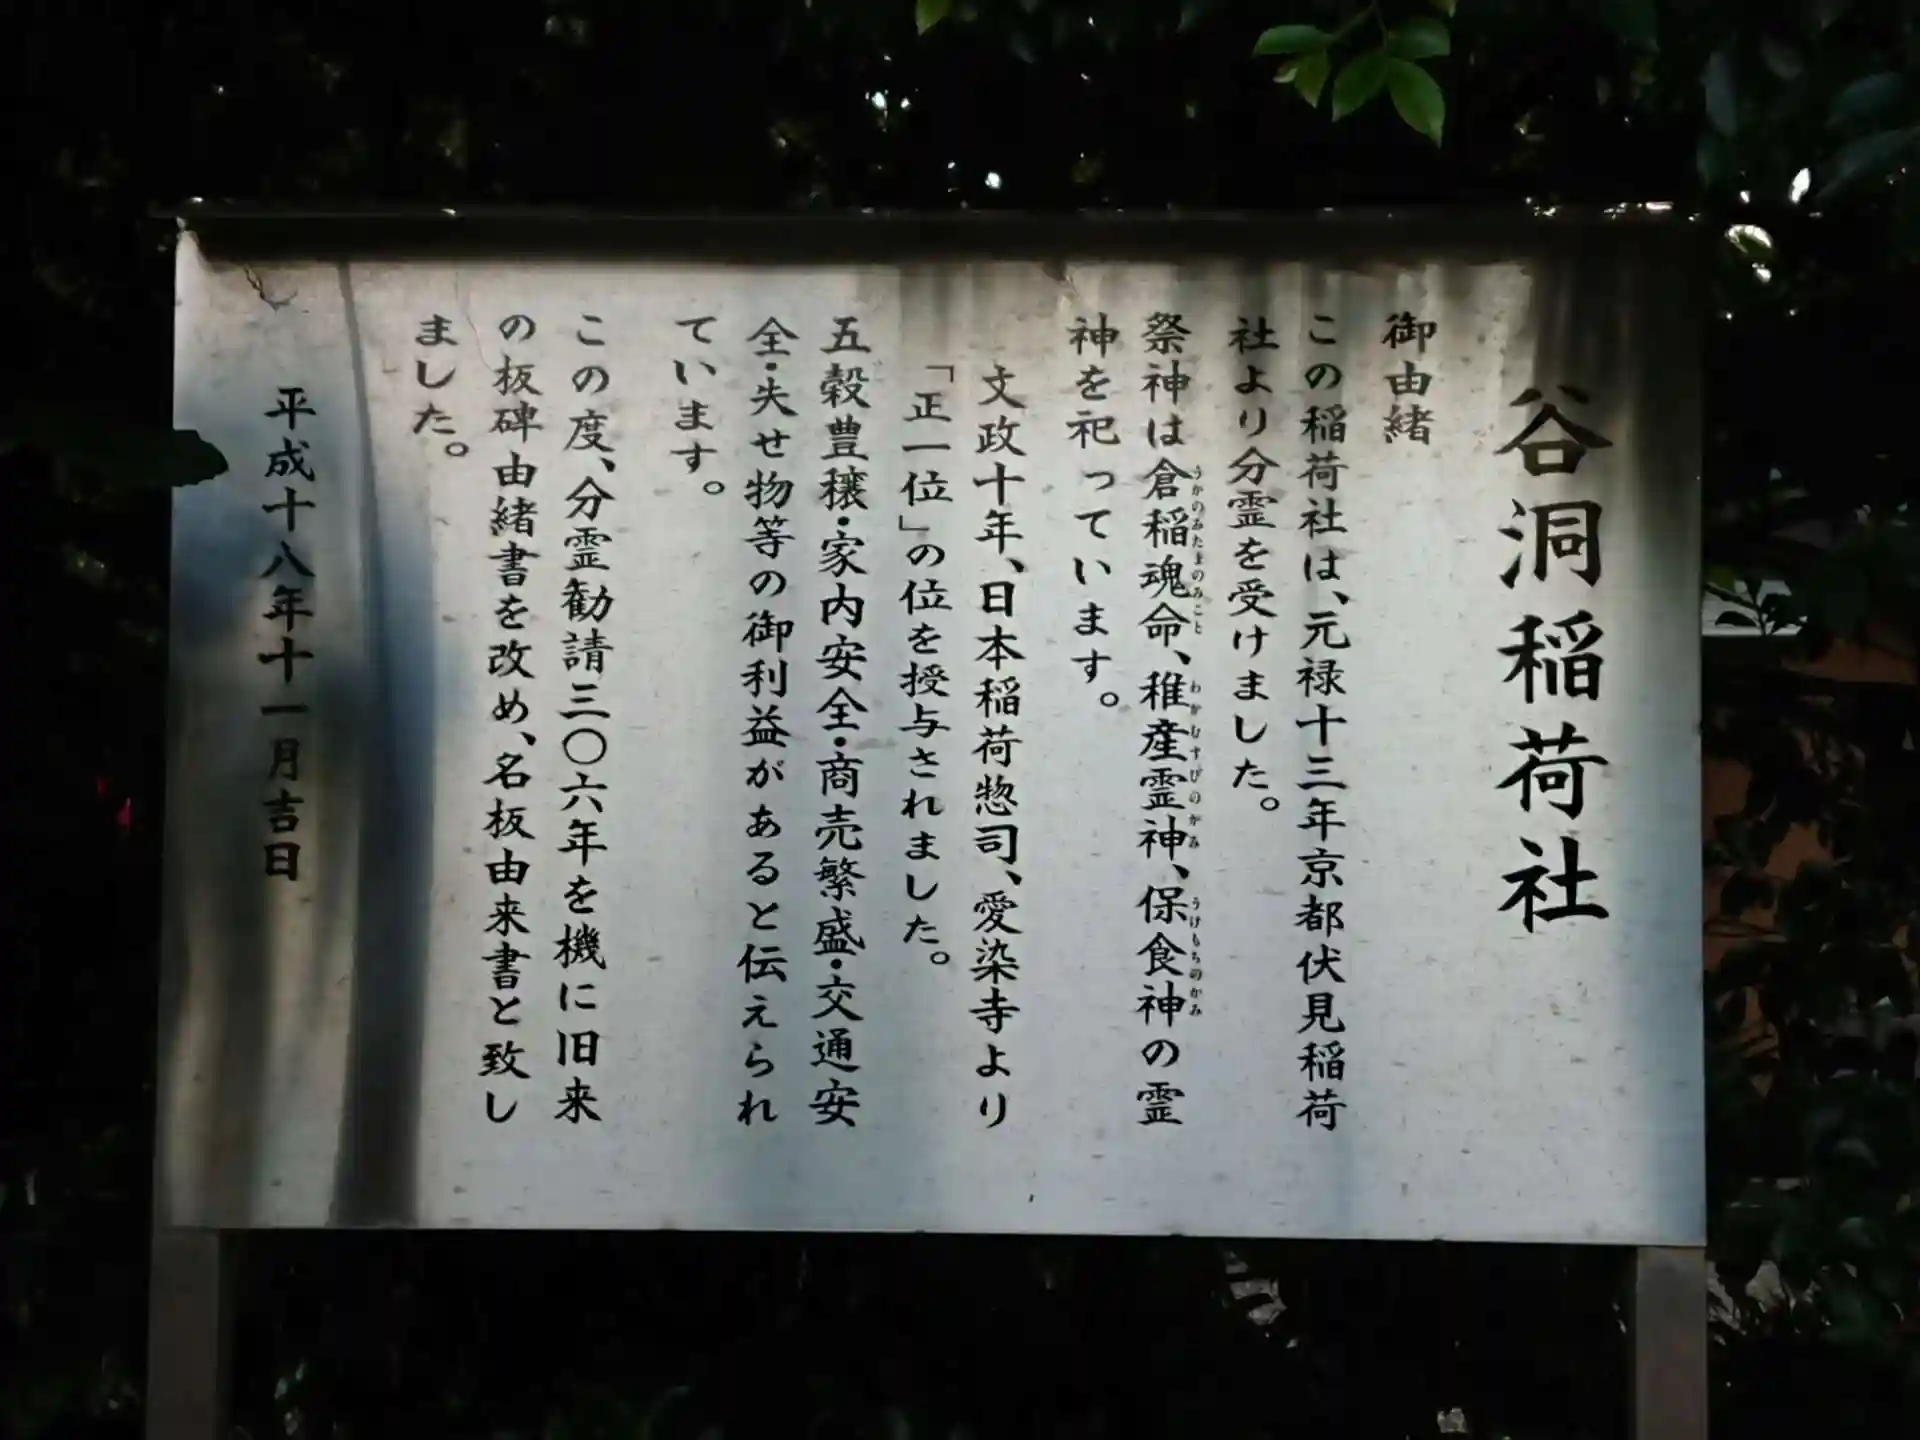 谷洞稲荷社
御由緒
この稲荷社は、元禄十三年京都伏見稲荷
社より分霊を受けました。
祭神は倉稲魂命、稚産霊神、保食神の霊
うかのみたまのみこと わかむすびのかみ うけもちのかみ
神を祀っています。
文政十年、日本稲荷惣司、愛染寺より
「正一位」の位を授与されました。
五穀豊穣・家内安全・商売繁盛・交通安
全・失せ物等の御利益があると伝えられ
ています。
この度、分霊勧請三〇六年を機に旧来
の板碑由緒書を改め、名板由来書と致し
ました。
平成十八年十一月吉日